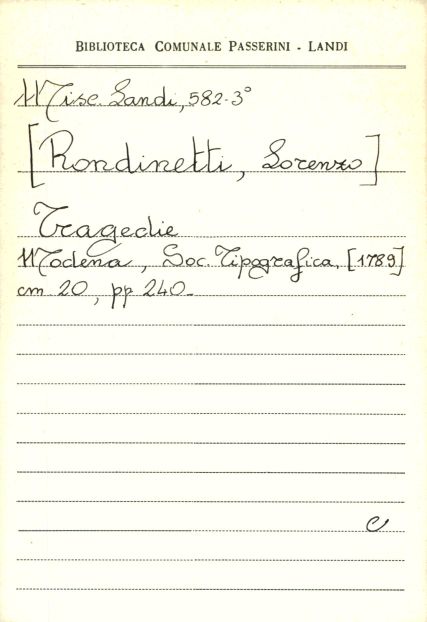 BIBLIOTECA COMUNALE PASSERINI - LANDI
Misc. Landi, 582-3°
[Rondinetti, Lorenzo]
Tragedie
Modena, Soc. Tipografica, [1789]
cm 20, pp 240.
e